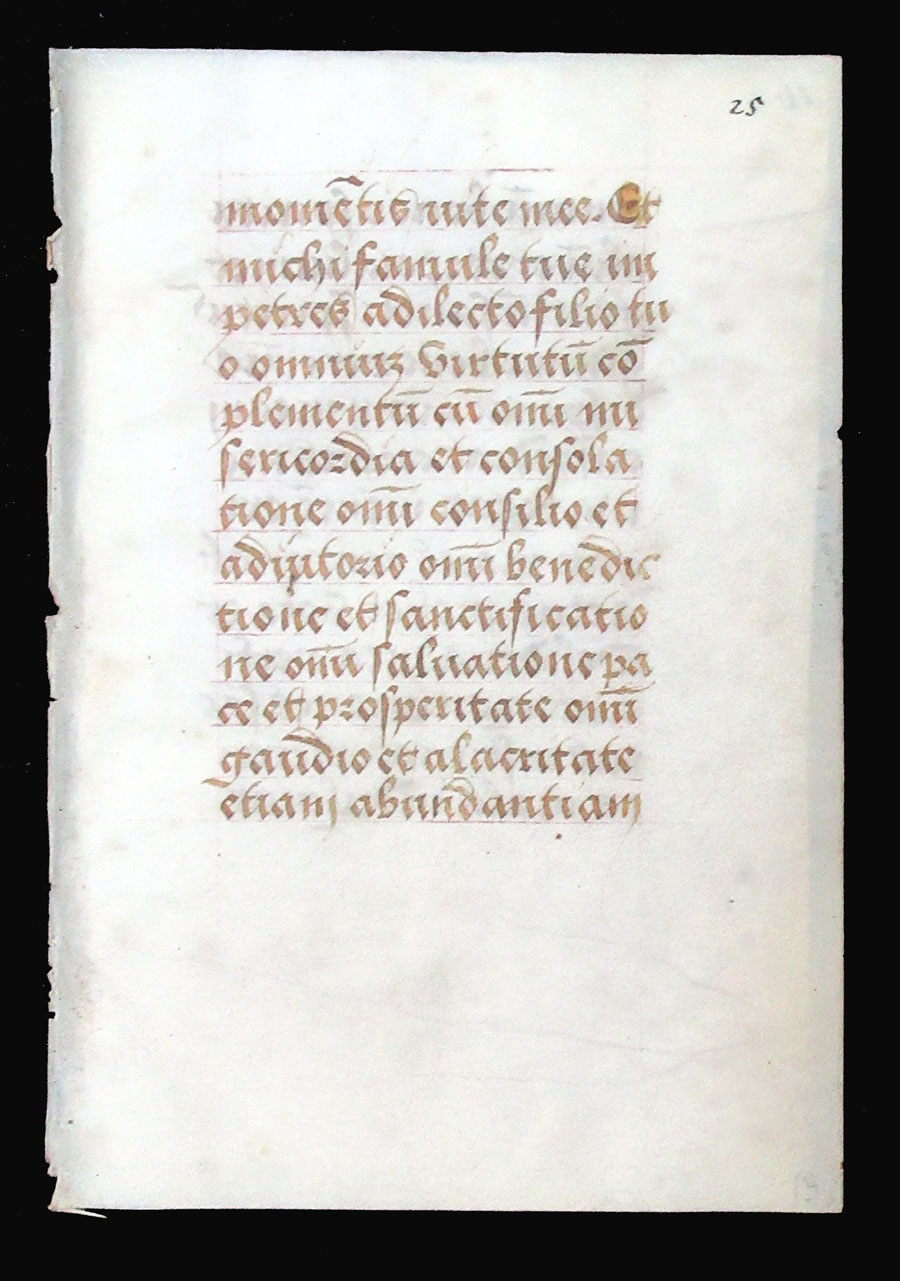 25
momētis uite mee. Et
michi famule tue im
petres a dilecto filio tu
o omniuz virtutū cō
plementū cū omī mi
sericordia et consola
tione omī consilio et
adiutorio omī benedic
tione et sanctificatio
ne omī saluatione pa
ce et prosperitate omī
gaudio et alacritate
etiam abundantiam